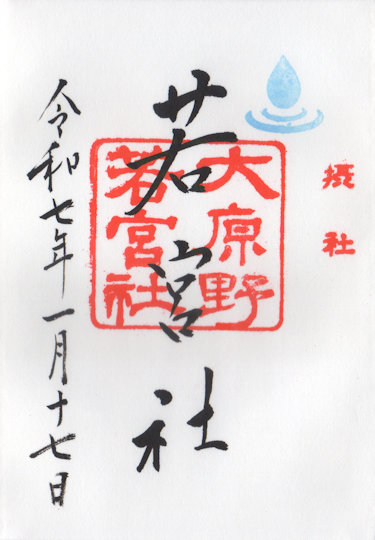 摂社
若宮社
大原野
若宮社
令和七年一月十七日